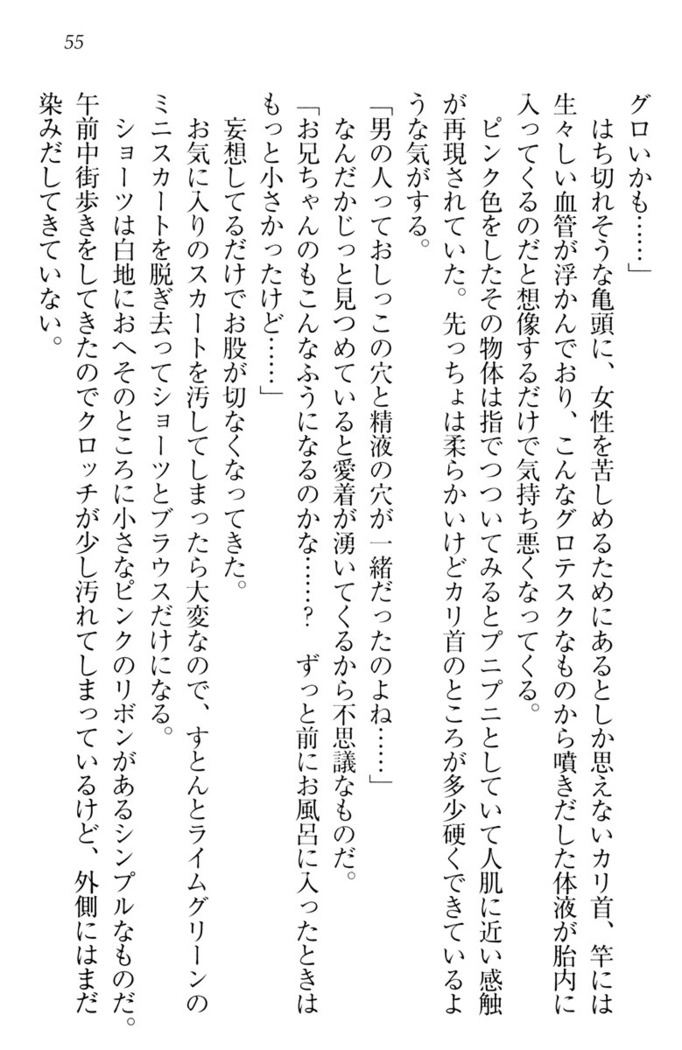 55
グロいかも……」
はち切れそうな亀頭に、女性を苦しめるためにあるとしか思えないカリ首、竿には
生々しい血管が浮かんでおり、こんなグロテスクなものから噴きだした体液が胎内に
入ってくるのだと想像するだけで気持ち悪くなってくる。
ピンク色をしたその物体は指でつついてみるとプニプニとしていて人肌に近い感触
が再現されていた。先っちょは柔らかいけどカリ首のところが多少硬くできているよ
うな気がする。
「男の人っておしっこの穴と精液の穴が一緒だったのよね……」
なんだかじっと見つめていると愛着が湧いてくるから不思議なものだ。
「お兄ちゃんのもこんなふうになるのかな……？　ずっと前にお風呂に入ったときは
もっと小さかったけど……」
妄想してるだけでお股が切なくなってきた。
お気に入りのスカートを汚してしまったら大変なので、すとんとライムグリーンの
ミニスカートを脱ぎ去ってショーツとブラウスだけになる。
ショーツは白地におへそのところに小さなピンクのリボンがあるシンプルなものだ。
午前中街歩きをしてきたのでクロッチが少し汚れてしまっているけど、外側にはまだ
染みだしてきていない。